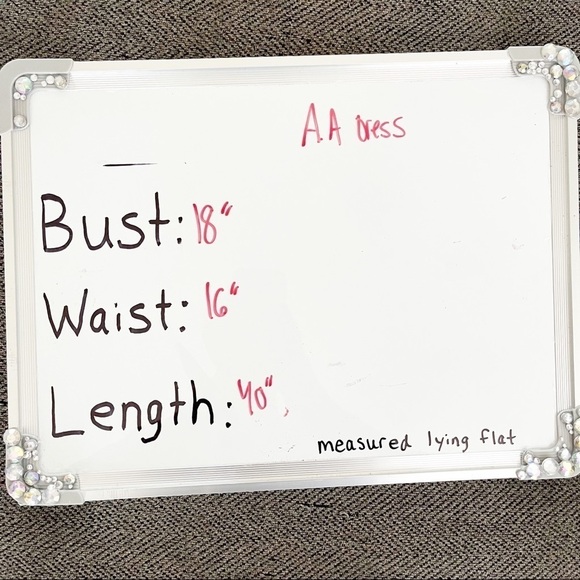 A.A Dress
Bust: 18"
Waist: 16"
Length: 40"
measured lying flat